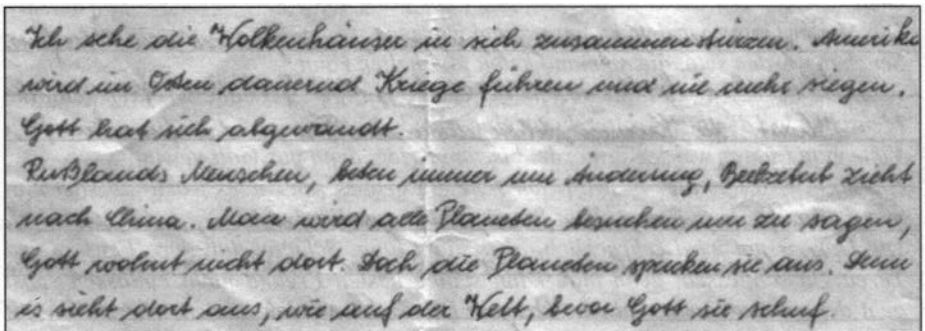 Ich sehe die Wolkenhäuser in sich zusammenstürzen. Amerika
wird im Osten dauernd Kriege führen und nie mehr siegen.
Gott hat sich abgewandt.
Rußlands Menschen, beten immer um Änderung, Beelzebub zieht
nach China. Man wird alle Planeten besuchen um zu sagen,
Gott wohnt nicht dort. Doch die Planeten spucken sie aus. Denn
es sieht dort aus, wie auf der Welt, bevor Gott sie schuf.